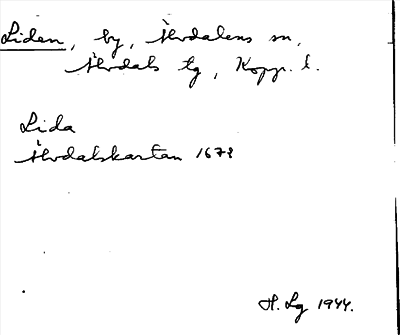 Liden, by, Älvdalens sn,
Älvdals tg, Kopp. l.
Lida
Älvdalskartan 1678
H. Lg 1944.